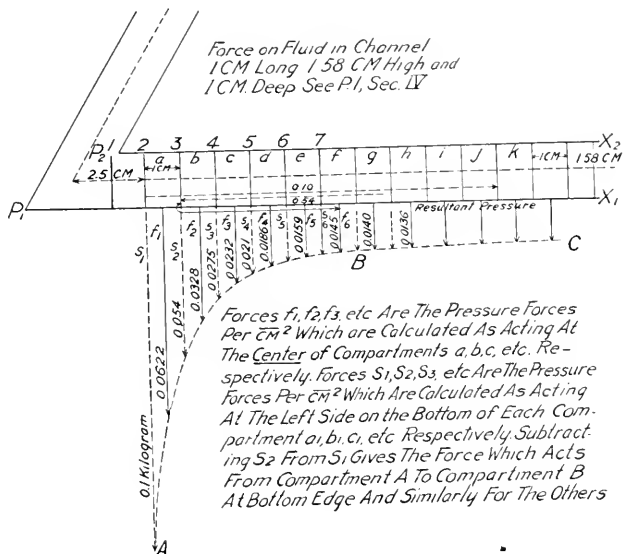 Force on Fluid in Channel
1CM Long 1.58 CM High and
1CM. Deep See P.1, Sec. IV
P2 1 2 3 4 5 6 7 X2
a b c d e f g h i j k 1CM 1.58 CM
1CM
2.5 CM
0.10
0.54
P1 X1
Resultant Pressure
S1 f1 S2 f2 S3 f3 S4 f4 S5 f5 S6 f6
0.1 Kilogram
0.0622
0.054
0.0328
0.0275
0.0232
0.021
0.0186
0.0159
0.0145
0.0140
0.0136
B C
A
Forces f1, f2, f3, etc Are The Pressure Forces
Per CM2 Which are Calculated As Acting At
The Center of Compartments a, b, c, etc. Re-
spectively. Forces S1, S2, S3, etc Are The Pressure
Forces Per CM2 Which Are Calculated As Acting
At The Left Side on the Bottom of Each Com-
partment a1, b1, c1, etc Respectively. Subtract-
ing S2 From S1 Gives The Force Which Acts
From Compartment A To Compartment B
At Bottom Edge And Similarly For The Others